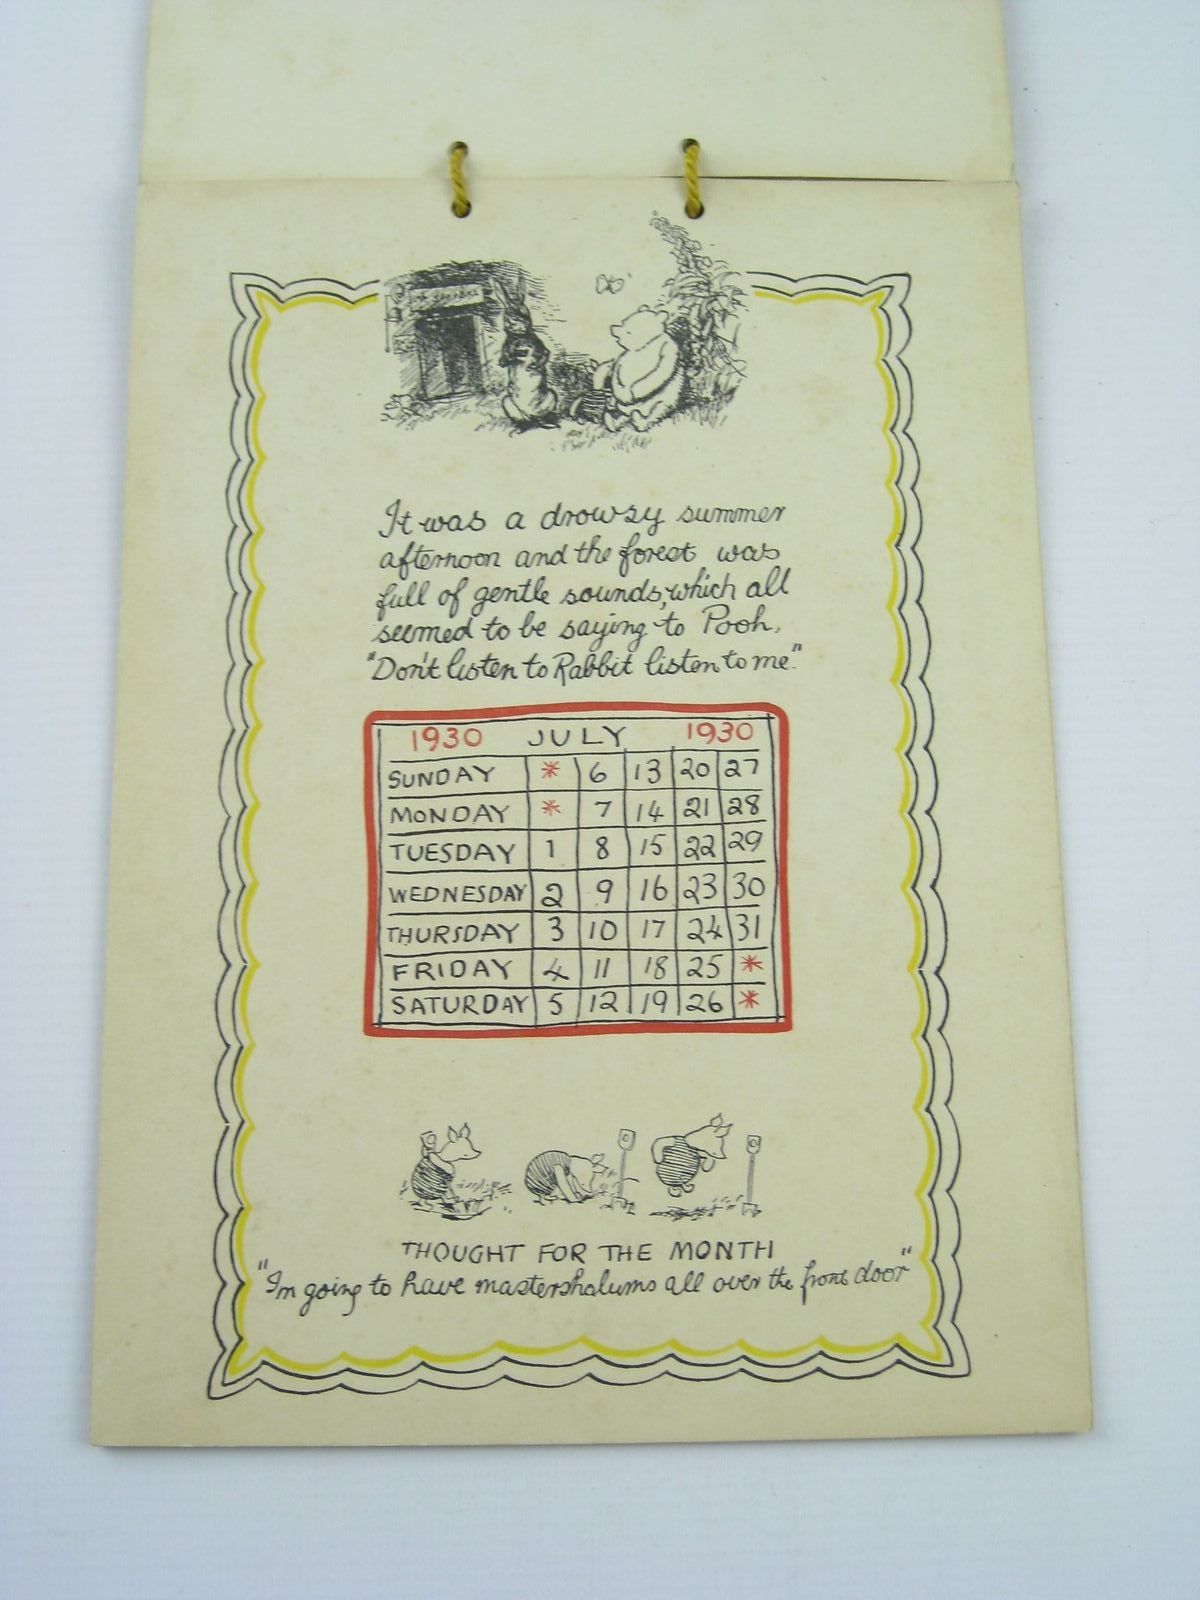 It was a drowsy summer
afternoon and the forest was
full of gentle sounds, which all
seemed to be saying to Pooh,
"Don't listen to Rabbit listen to me."
1930 JULY 1930
SUNDAY * 6 13 20 27
MONDAY * 7 14 21 28
TUESDAY 1 8 15 22 29
WEDNESDAY 2 9 16 23 30
THURSDAY 3 10 17 24 31
FRIDAY 4 11 18 25 *
SATURDAY 5 12 19 26 *
THOUGHT FOR THE MONTH
"I'm going to have mastershalums all over the front door"